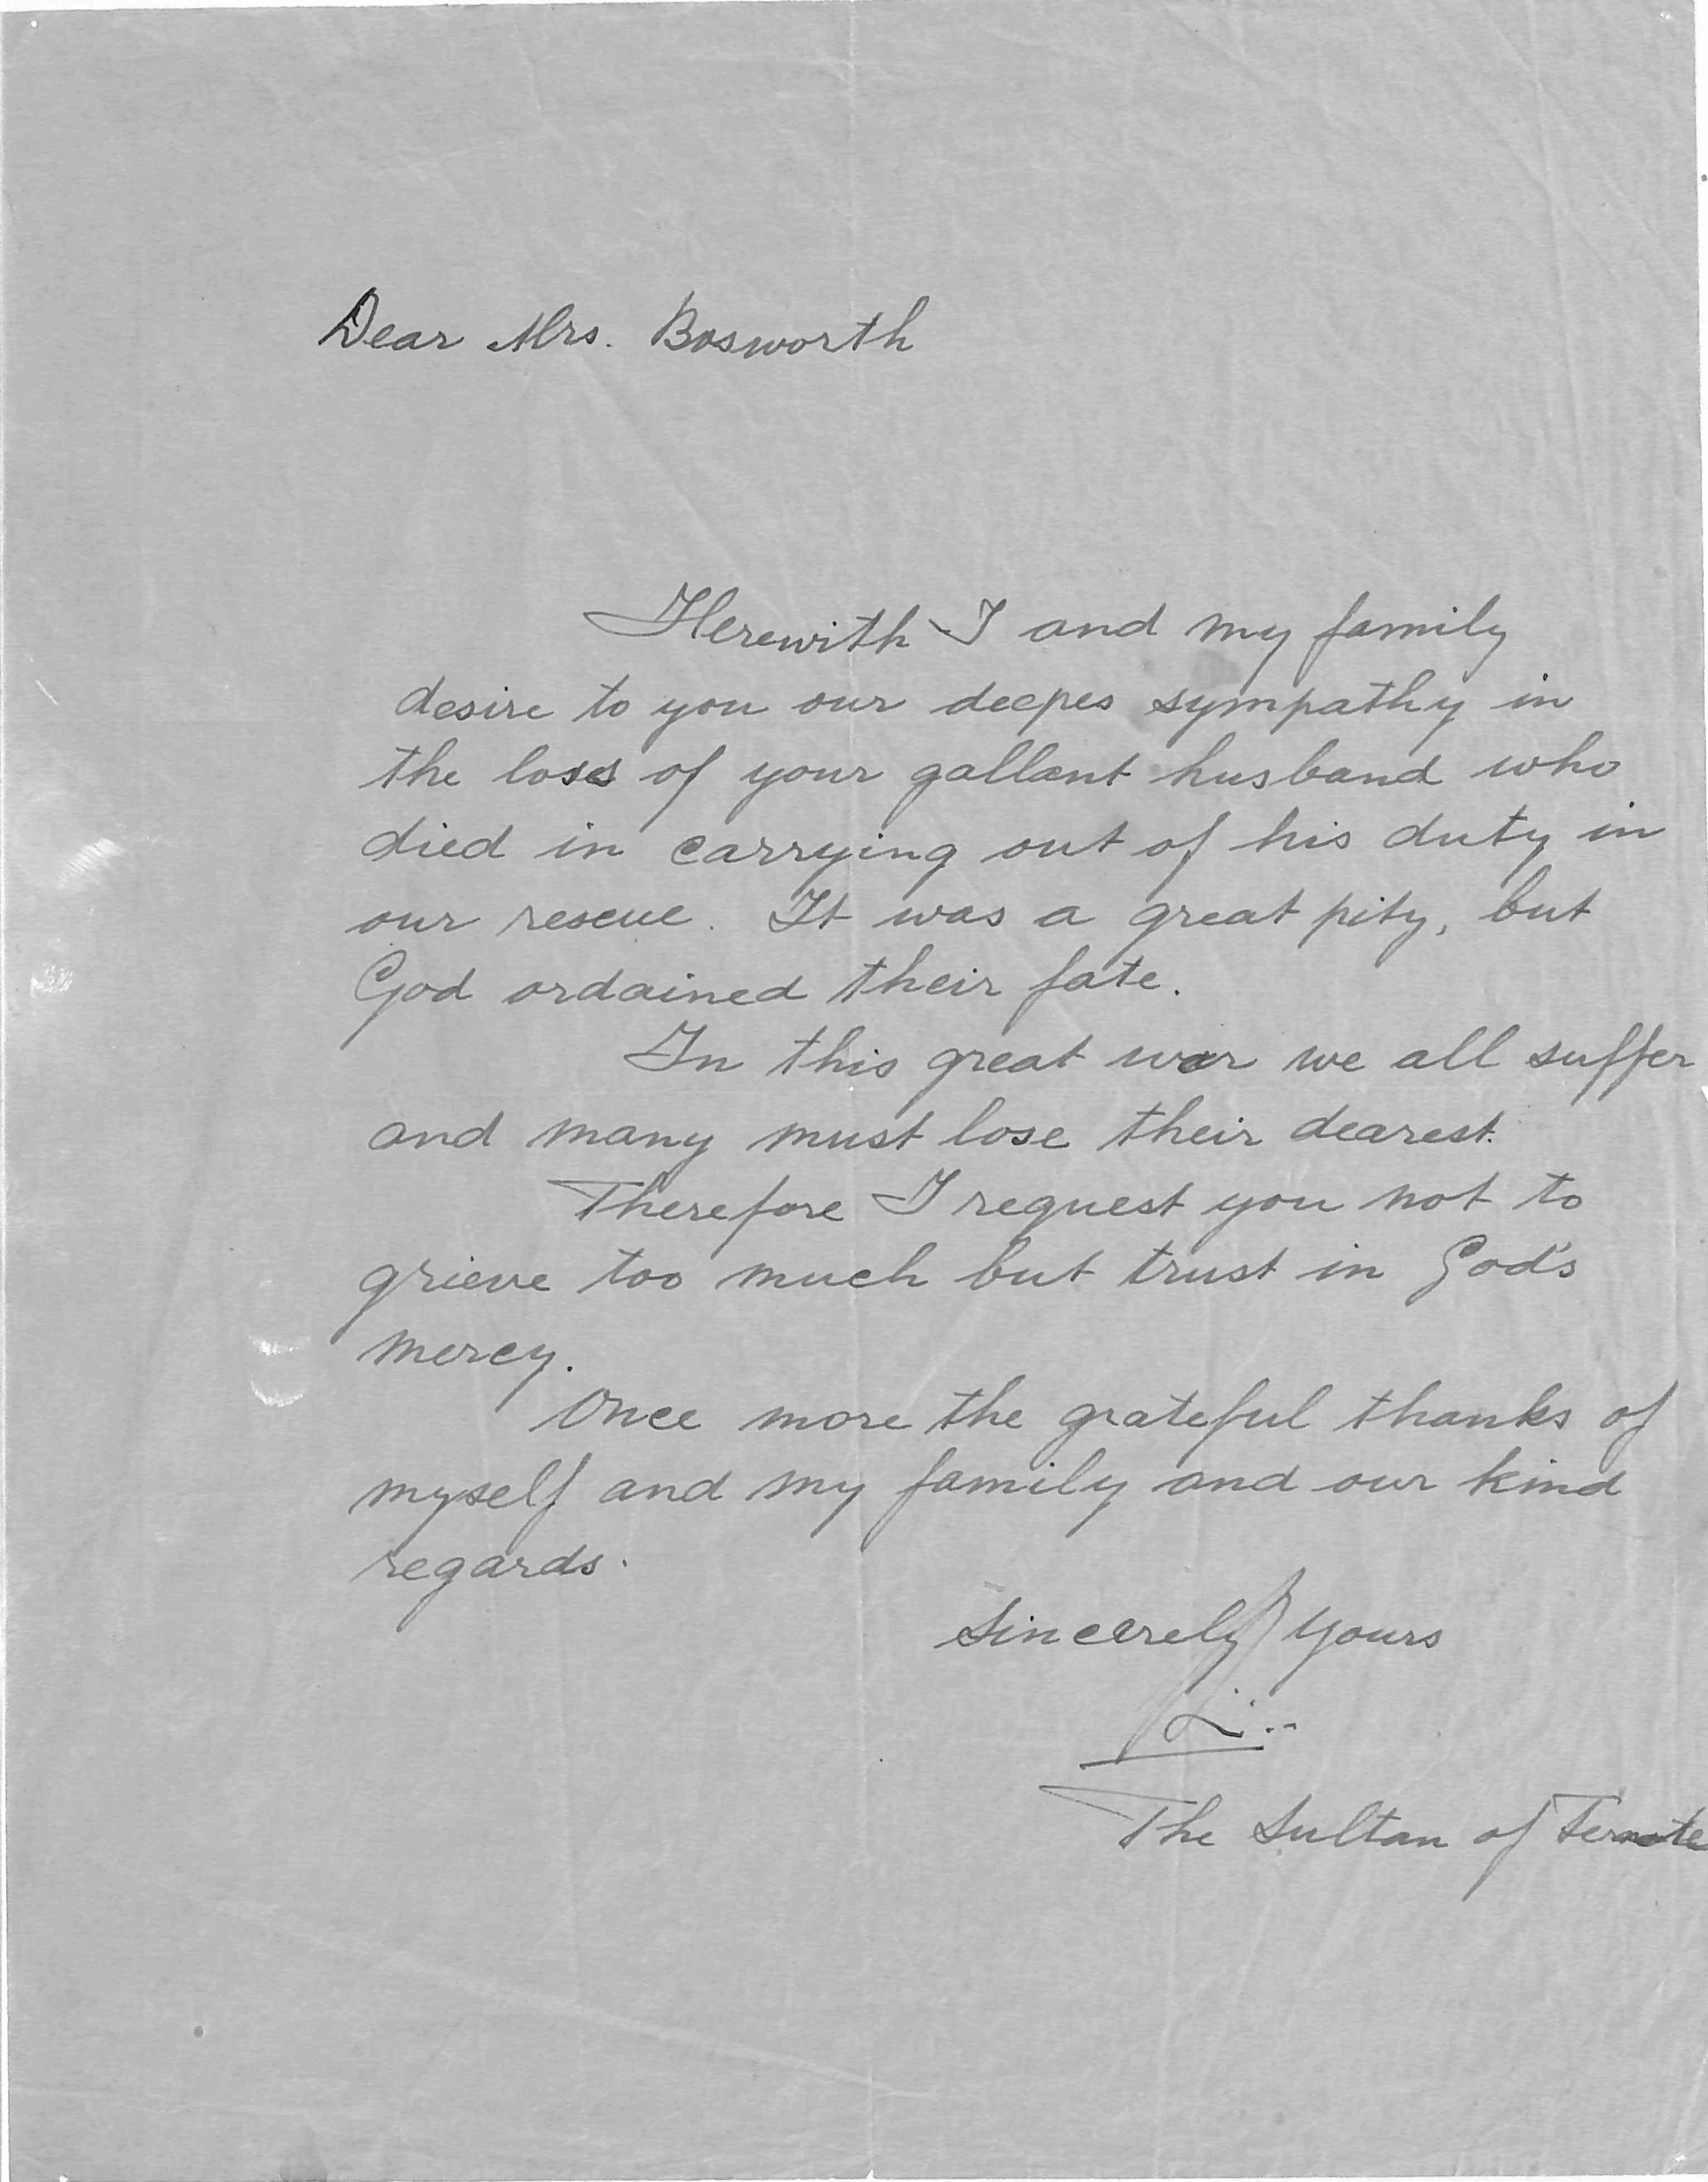 Dear Mrs. Bosworth
Herewith I and my family
desire to you our deepes sympathy in
the loss of your gallant husband who
died in carrying out of his duty in
our rescue. It was a great pity, but
God ordained their fate.
In this great war we all suffer
and many must lose their dearest.
Therefore I request you not to
grieve too much but trust in God's
mercy.
Once more the grateful thanks of
myself and my family and our kind
regards.
Sincerely yours
The Sultan of Ternate